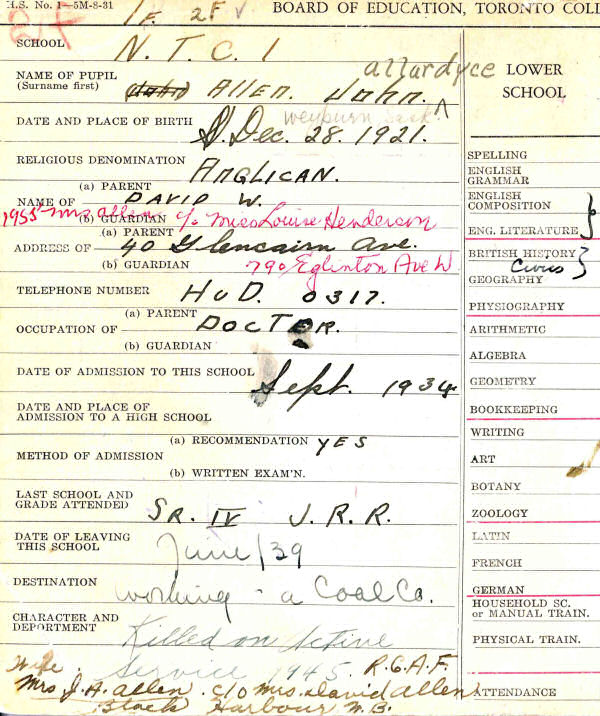 H.S. No. 1—5M-8-31
BOARD OF EDUCATION, TORONTO COLL
1F. 2F
SCHOOL N.T.C.I
allardyce
NAME OF PUPIL
(Surname first) (John) Allen. John.
weyburn, Sask.
DATE AND PLACE OF BIRTH Dec. 28. 1921.
RELIGIOUS DENOMINATION ANGLICAN.
(a) PARENT
NAME OF DAVID W.
1955 Mrs Allen c/o Miss Louise Henderson
(b) GUARDIAN
(a) PARENT
ADDRESS OF 40 Glencairn Ave.
(b) GUARDIAN 790 Eglinton Ave W.
TELEPHONE NUMBER HUD. 0317.
(a) PARENT
OCCUPATION OF DOCTOR.
(b) GUARDIAN
DATE OF ADMISSION TO THIS SCHOOL Sept. 1934
DATE AND PLACE OF
ADMISSION TO A HIGH SCHOOL
(a) RECOMMENDATION YES
METHOD OF ADMISSION
(b) WRITTEN EXAM'N.
LAST SCHOOL AND
GRADE ATTENDED SR. IV J.R.R.
DATE OF LEAVING
THIS SCHOOL June/39
DESTINATION working - a Coal Co.
CHARACTER AND
DEPORTMENT Killed on Active
Service 1945. R.C.A.F.
Wife.
Mrs J.A. Allen. c/o Mrs. David Allen
Black Harbour N.B.
LOWER
SCHOOL
SPELLING
ENGLISH
GRAMMAR
ENGLISH
COMPOSITION
ENG. LITERATURE
BRITISH HISTORY
Civics
GEOGRAPHY
PHYSIOGRAPHY
ARITHMETIC
ALGEBRA
GEOMETRY
BOOKKEEPING
WRITING
ART
BOTANY
ZOOLOGY
LATIN
FRENCH
GERMAN
HOUSEHOLD SC.
or MANUAL TRAIN.
PHYSICAL TRAIN.
ATTENDANCE